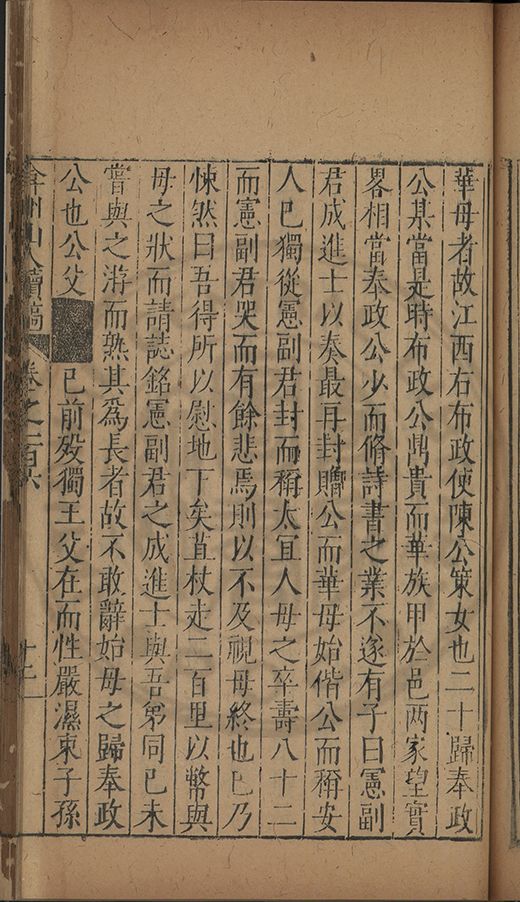 華母者故江西右布政使陳公策女也二十歸奉政
公某當是時布政公鼎貴而華族甲於邑两家望實
畧相當奉政公少而脩詩書之業不遂有子曰憲副
君成進士以奏最再封贈公而華母始偕公而稱安
人已獨從憲副君封而稱太宜人母之卒壽八十二
而憲副君哭而有餘悲焉則以不及視母終也已乃
悚然曰吾得所以慰地下矣苴杖走二百里以幣與
母之狀而請誌銘憲副君之成進士與吾第同已未
嘗與之游而熟其爲長者故不敢辭始母之歸奉政
公也公父已前殁獨王父在而性嚴濕束子孫
弇州山人續稿 卷之一百六